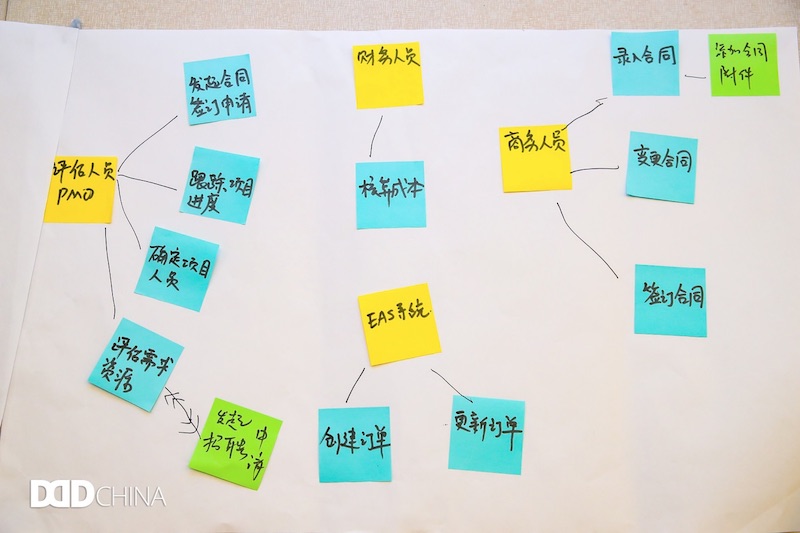 发起合同
签订申请
评估人员
PMO
跟踪项目
进度
确定项目
人员
评估需求
资源
发起
招聘申请
财务人员
核算成本
EAS系统
创建订单
更新订单
商务人员
录入合同
添加合同
附件
变更合同
签订合同
DDDCHINA